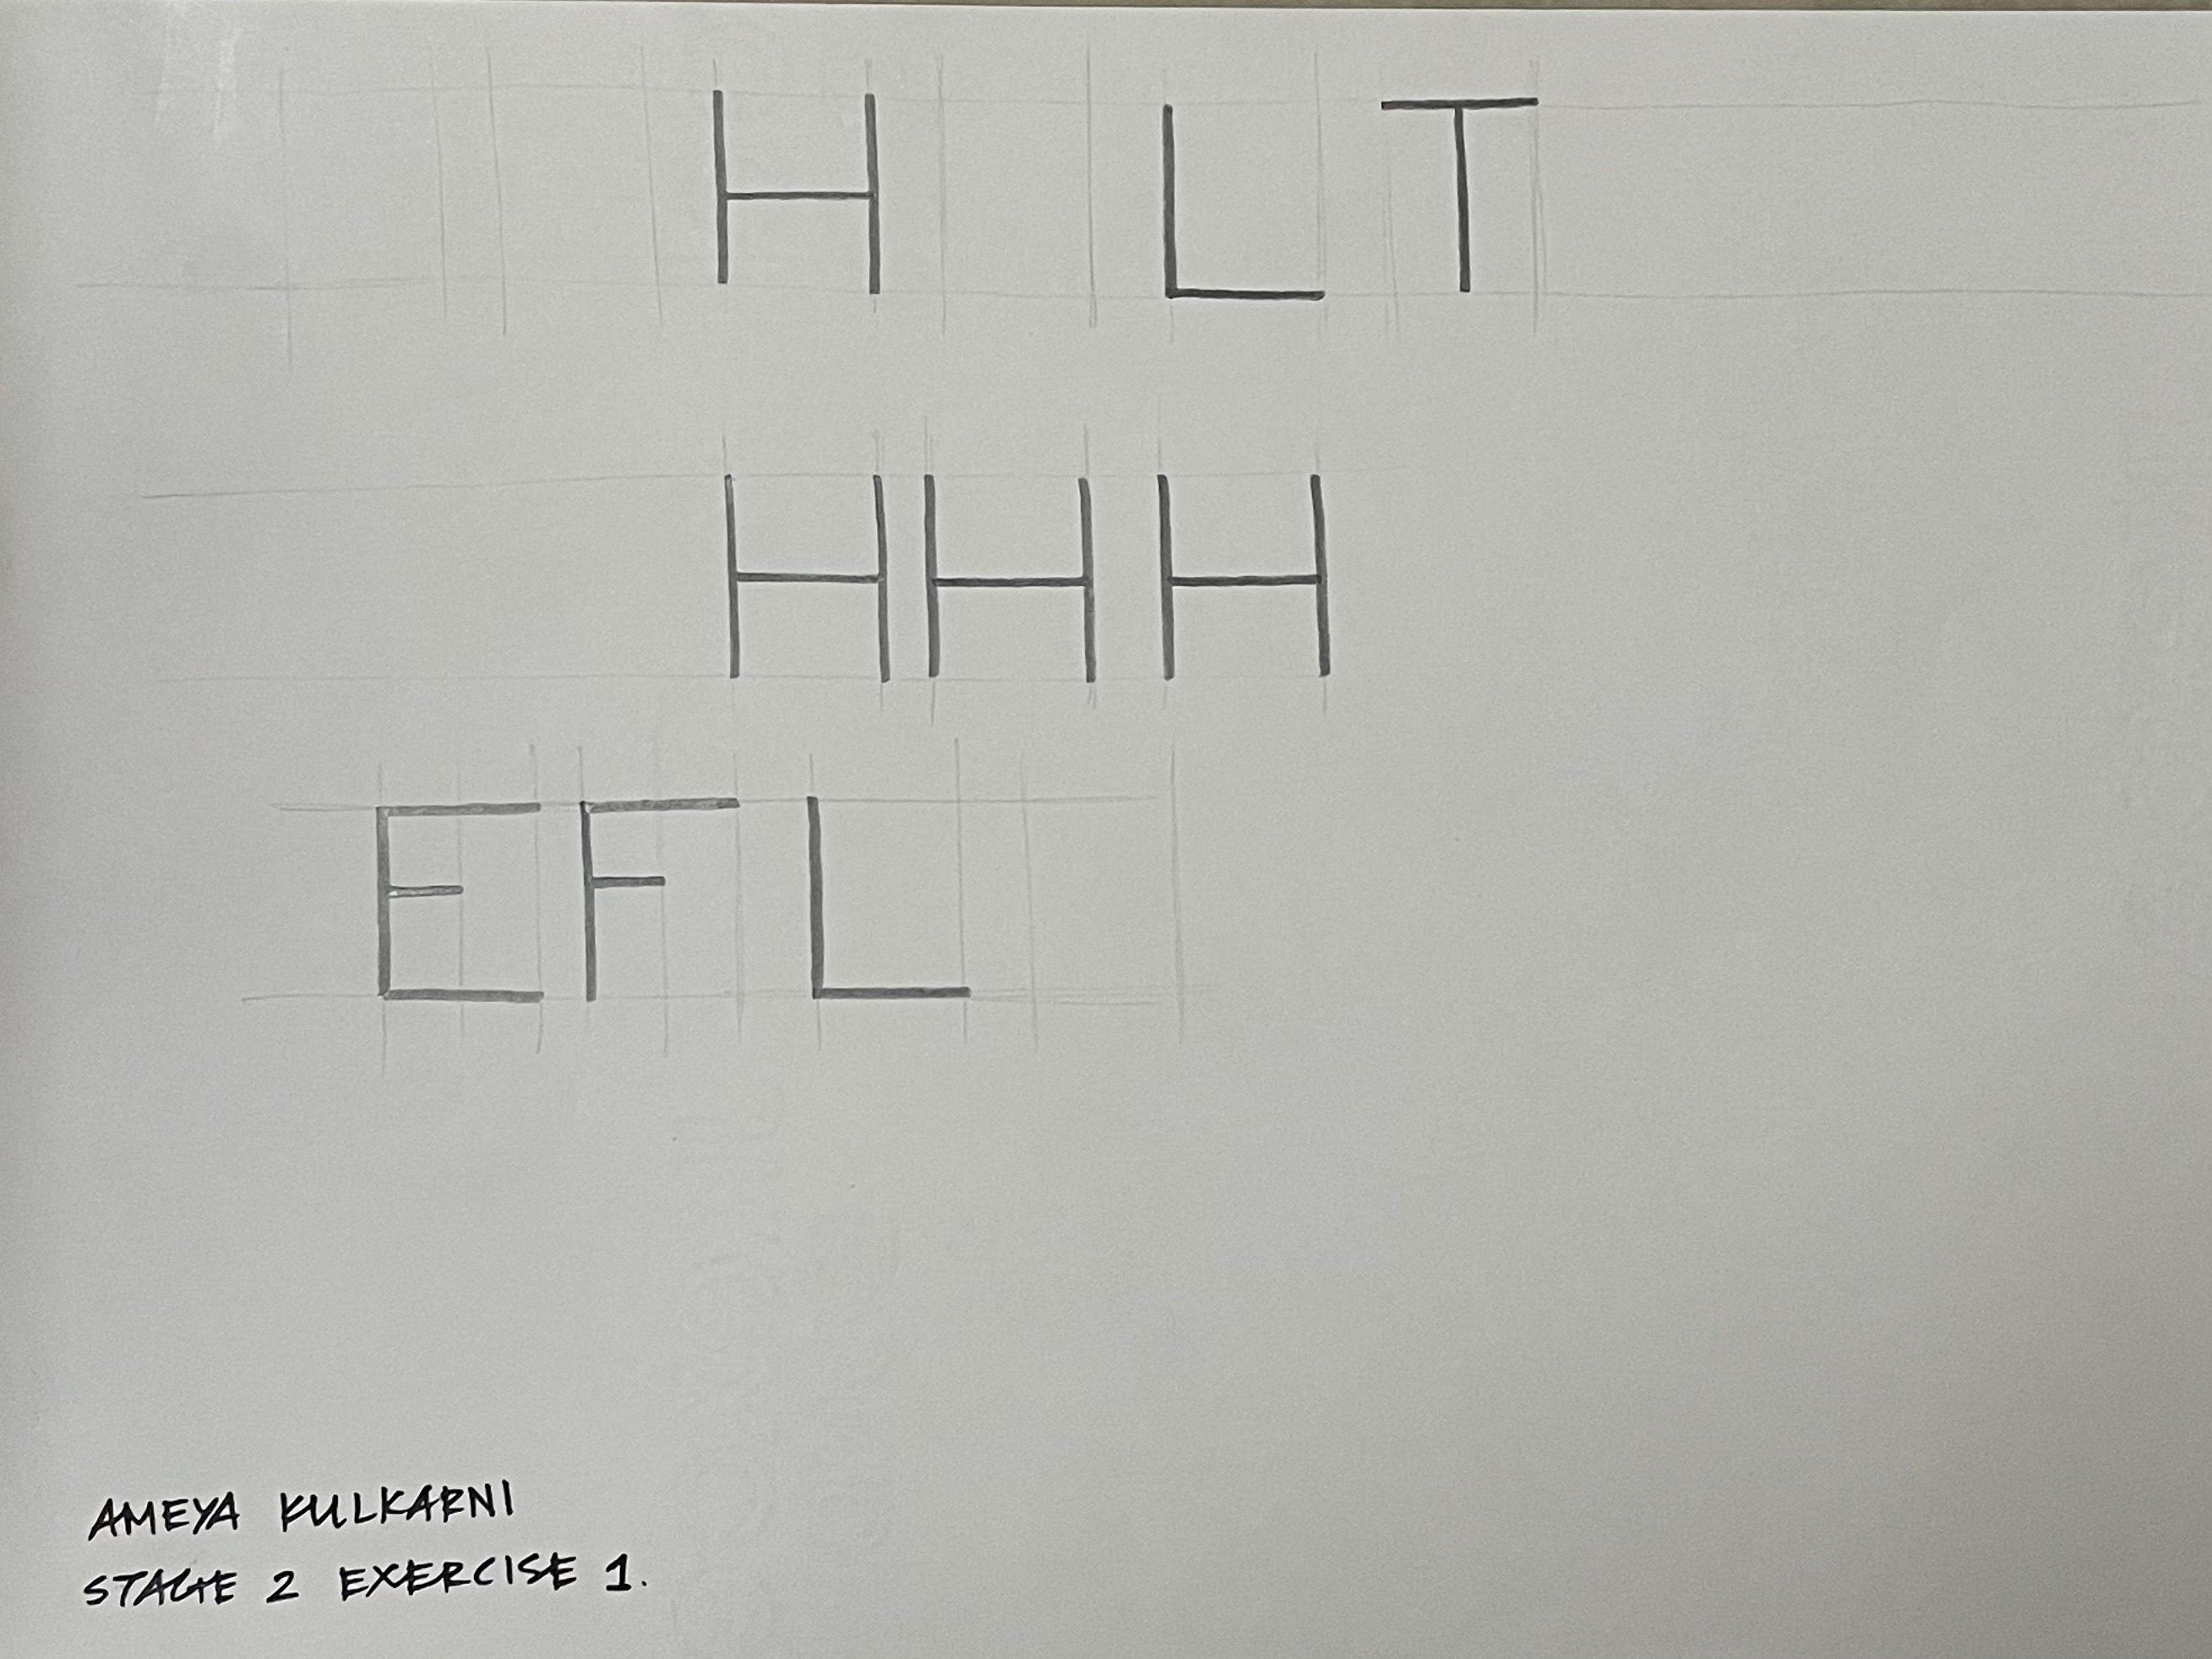 H LT
HHH
EFL
AMEYA KULKARNI
STAGE 2 EXERCISE 1.